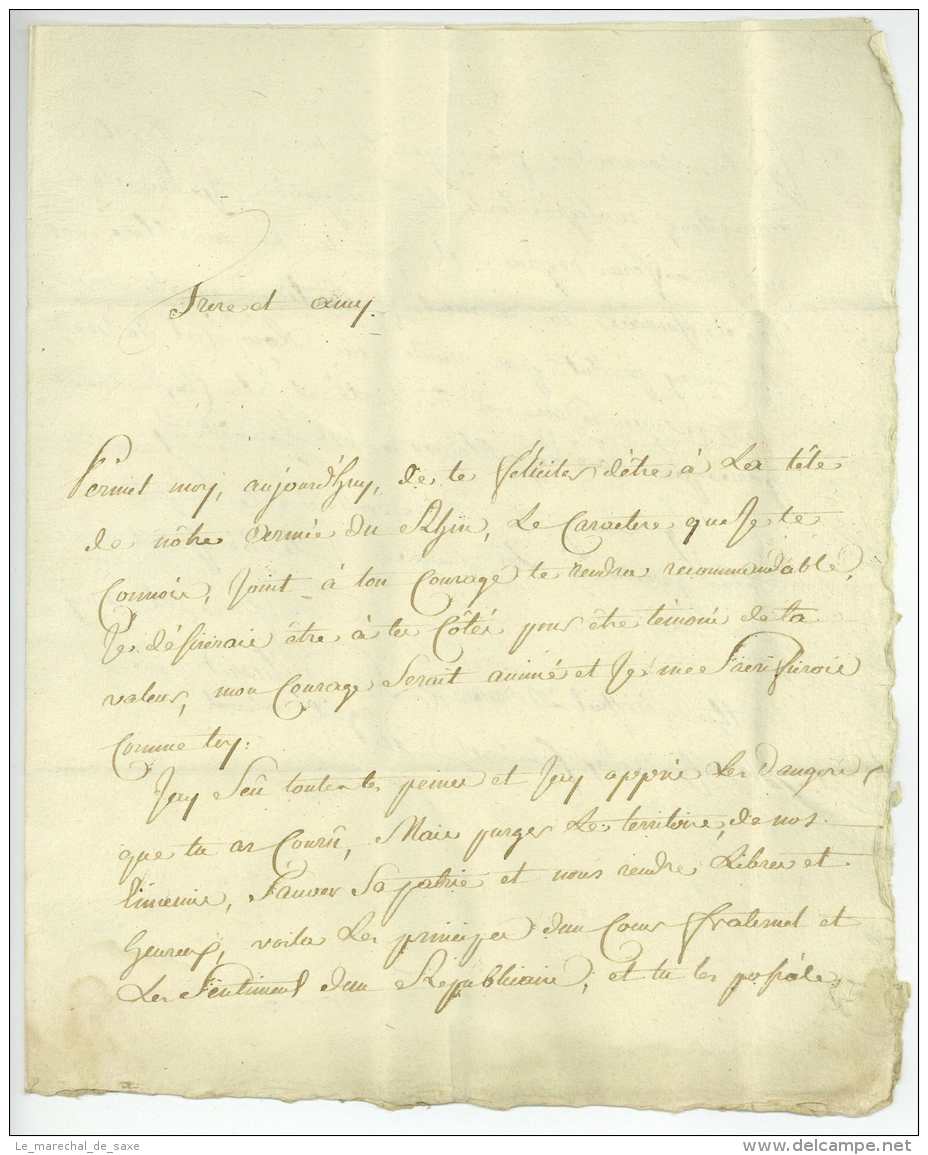 Frere et amy.
Permet moy, aujourd'huy, de te féliciter d'être à La tête
de nôtre armée du Rhin, Le Caractere que Je te
Connois, Joint à ton Courage te rendra recommendable,
Je désirerais être à tes Côtés pour être témoin de ta
valeur, mon Courage Serait animé et Je me Sacrifierois
Comme toy:
J'ay Sçû toutes tes peines et J'ay appris Les dangers
que tu as Courû, Mais purger Le territoire, de nos
Ennemis, Sauver Sa patrie et nous rendre Libres et
heureux, voila Les principes d'un Coeur fraternel et
Les Sentiments d'un Républicain, et tu les possède
Le_marechal_de_saxe
www.delcampe.net